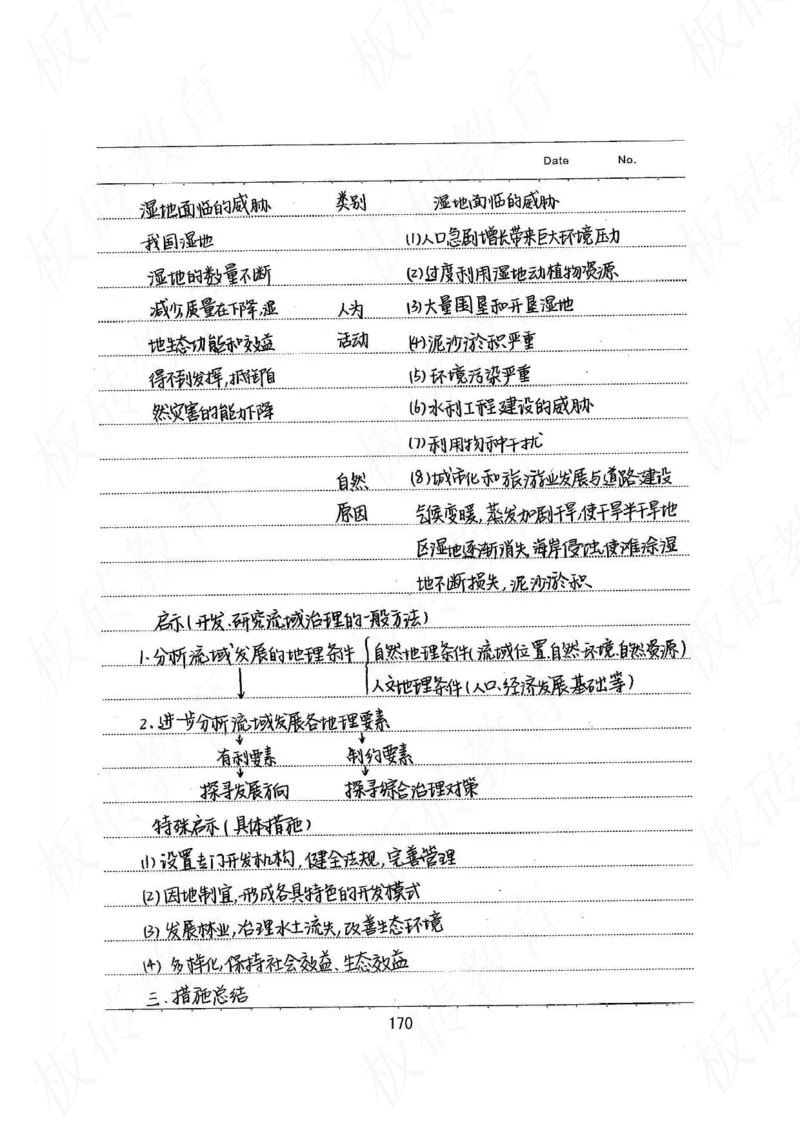 Date No.
湿地面临的威胁 类别 湿地面临的威胁
我国湿地 (1)人口急剧增长带来巨大环境压力
湿地的数量不断 (2)过度利用湿地动植物资源
减少质量在下降,湿 人为 (3)大量围垦和开垦湿地
地生态功能和效益 活动 (4)泥沙淤积严重
得不到发挥,抵御自 (5)环境污染严重
然灾害的能力下降 (6)水利工程建设的威胁
(7)利用物种干扰
自然 (8)城市化和旅游业发展与道路建设
原因 气候变暖,蒸发加剧干旱,使干旱半干旱地
区湿地逐渐消失,海岸侵蚀,使滩涂湿
地不断损失,泥沙淤积
启示(开发、研究流域治理的一般方法)
1.分析流域发展的地理条件 自然地理条件(流域位置、自然环境、自然资源)
人文地理条件(人口、经济发展、基础等)
2.进一步分析流域发展各地理要素
有利要素 制约要素
探寻发展方向 探寻综合治理对策
特殊启示(具体措施)
(1)设置专门开发机构,健全法规,完善管理
(2)因地制宜,形成各具特色的开发模式
(3)发展林业,治理水土流失,改善生态环境
(4)多样化,保持社会效益、生态效益
三.措施总结
170
板砖教育